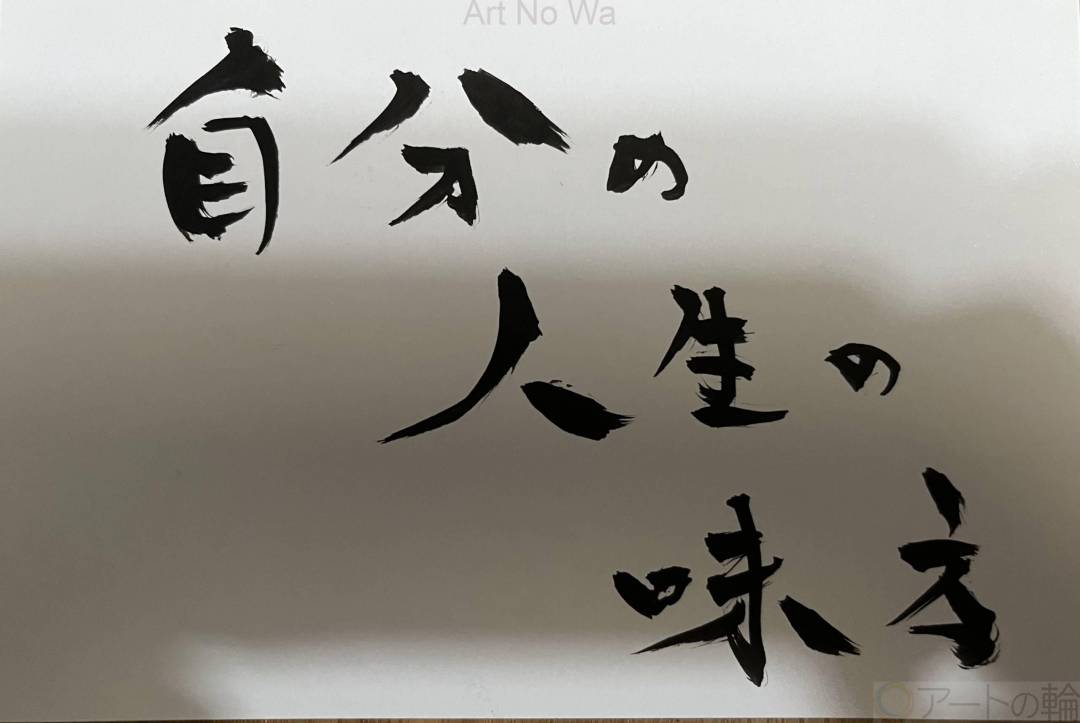 Art No Wa
自分の
人生の
味方
アートの輪